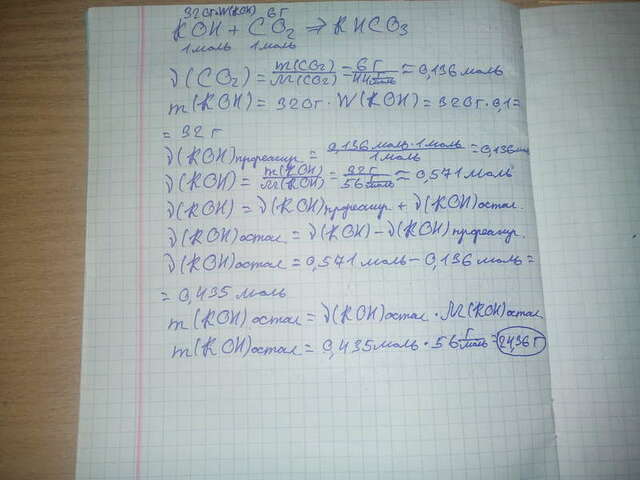 320г·W(KOH) 6г
KOH + CO2 => KHCO3
1моль 1моль
ν(CO2) = m(CO2)/M(CO2) = 6г/44г/моль ≈ 0,136 моль
m(KOH) = 320г · W(KOH) = 320г · 0,1 =
= 32 г
ν(KOH)прореагир = 0,136 моль · 1 моль/1 моль = 0,136 моль
ν(KOH) = m(KOH)/M(KOH) = 32г/56г/моль ≈ 0,571 моль
ν(KOH) = ν(KOH)прореагир + ν(KOH)остал.
ν(KOH)остал = ν(KOH) – ν(KOH)прореагир.
ν(KOH)остал = 0,571 моль – 0,136 моль =
= 0,435 моль
m(KOH)остал = ν(KOH)остал · M(KOH)остал
m(KOH)остал = 0,435 моль · 56 г/моль = 24,36 г